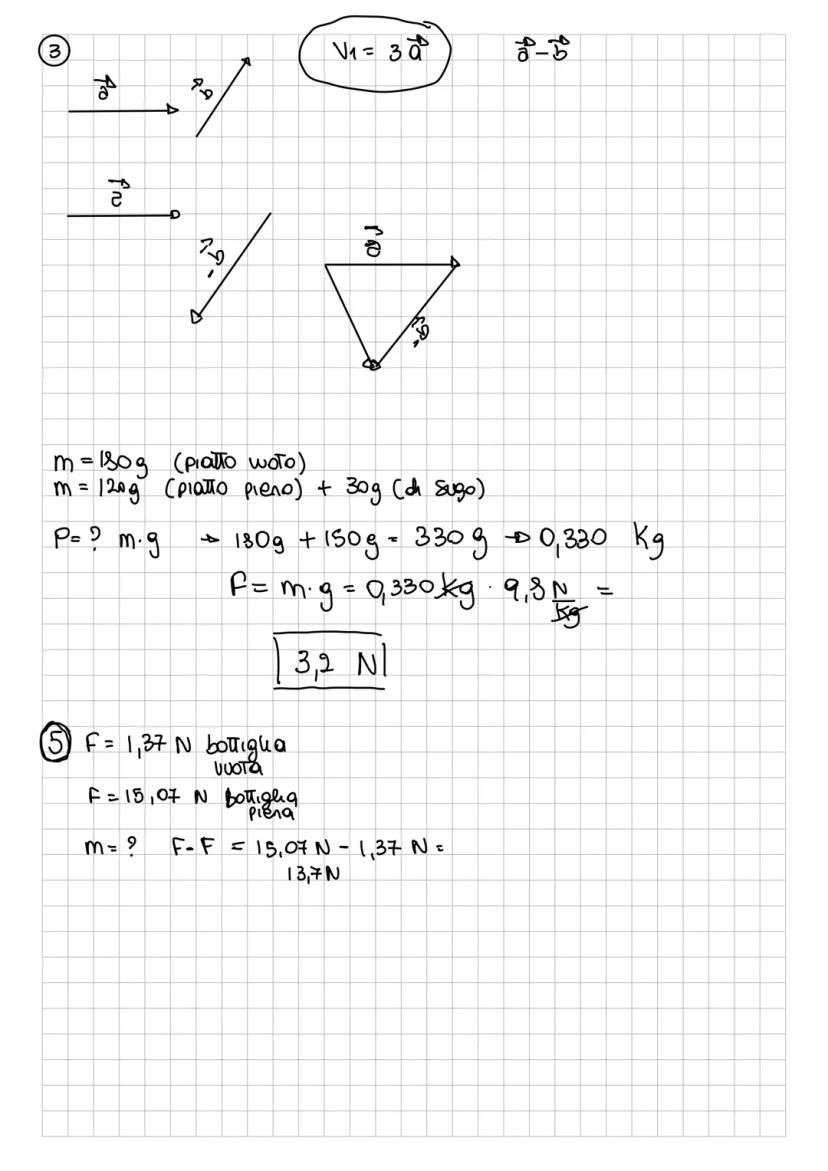 3
V1 = 3 a⃗
a⃗ - b⃗
a⃗
b⃗
a⃗
-b⃗
a⃗
-b⃗
m = 180g (piatto vuoto)
m = 120g (piatto pieno) + 30g (di sugo)
P = ? m·g → 180g + 150g = 330g → 0,330 Kg
F = m·g = 0,330 kg · 9,8 N/kg =
3,2 N
5 F = 1,37 N bottiglia
vuota
F = 15,07 N bottiglia
piena
m = ? F - F = 15,07 N - 1,37 N =
13,7 N